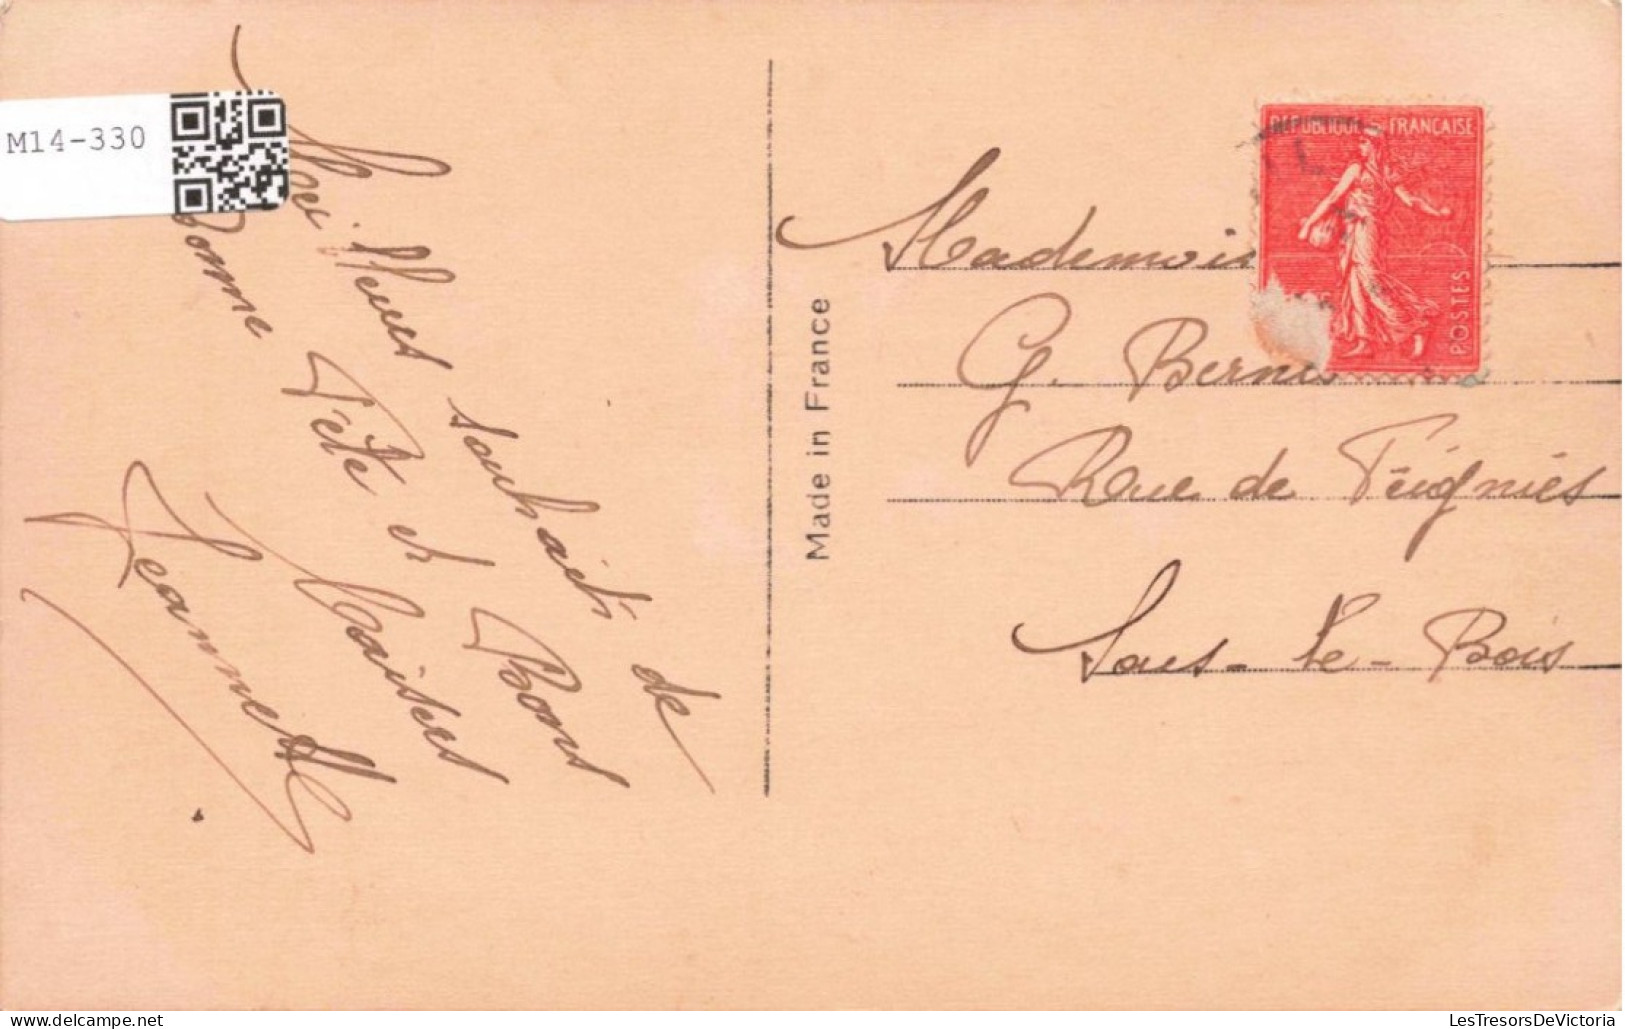 M14-330
Meilleurs souhaits de
Bonne Fête et Bons
Baisers
Jeannette
Made in France
REPUBLIQUE FRANCAISE
POSTES
Mademoise
G. Berni
Rue de Feignies
Sars-le-Bois
LesTresorsDeVictoria